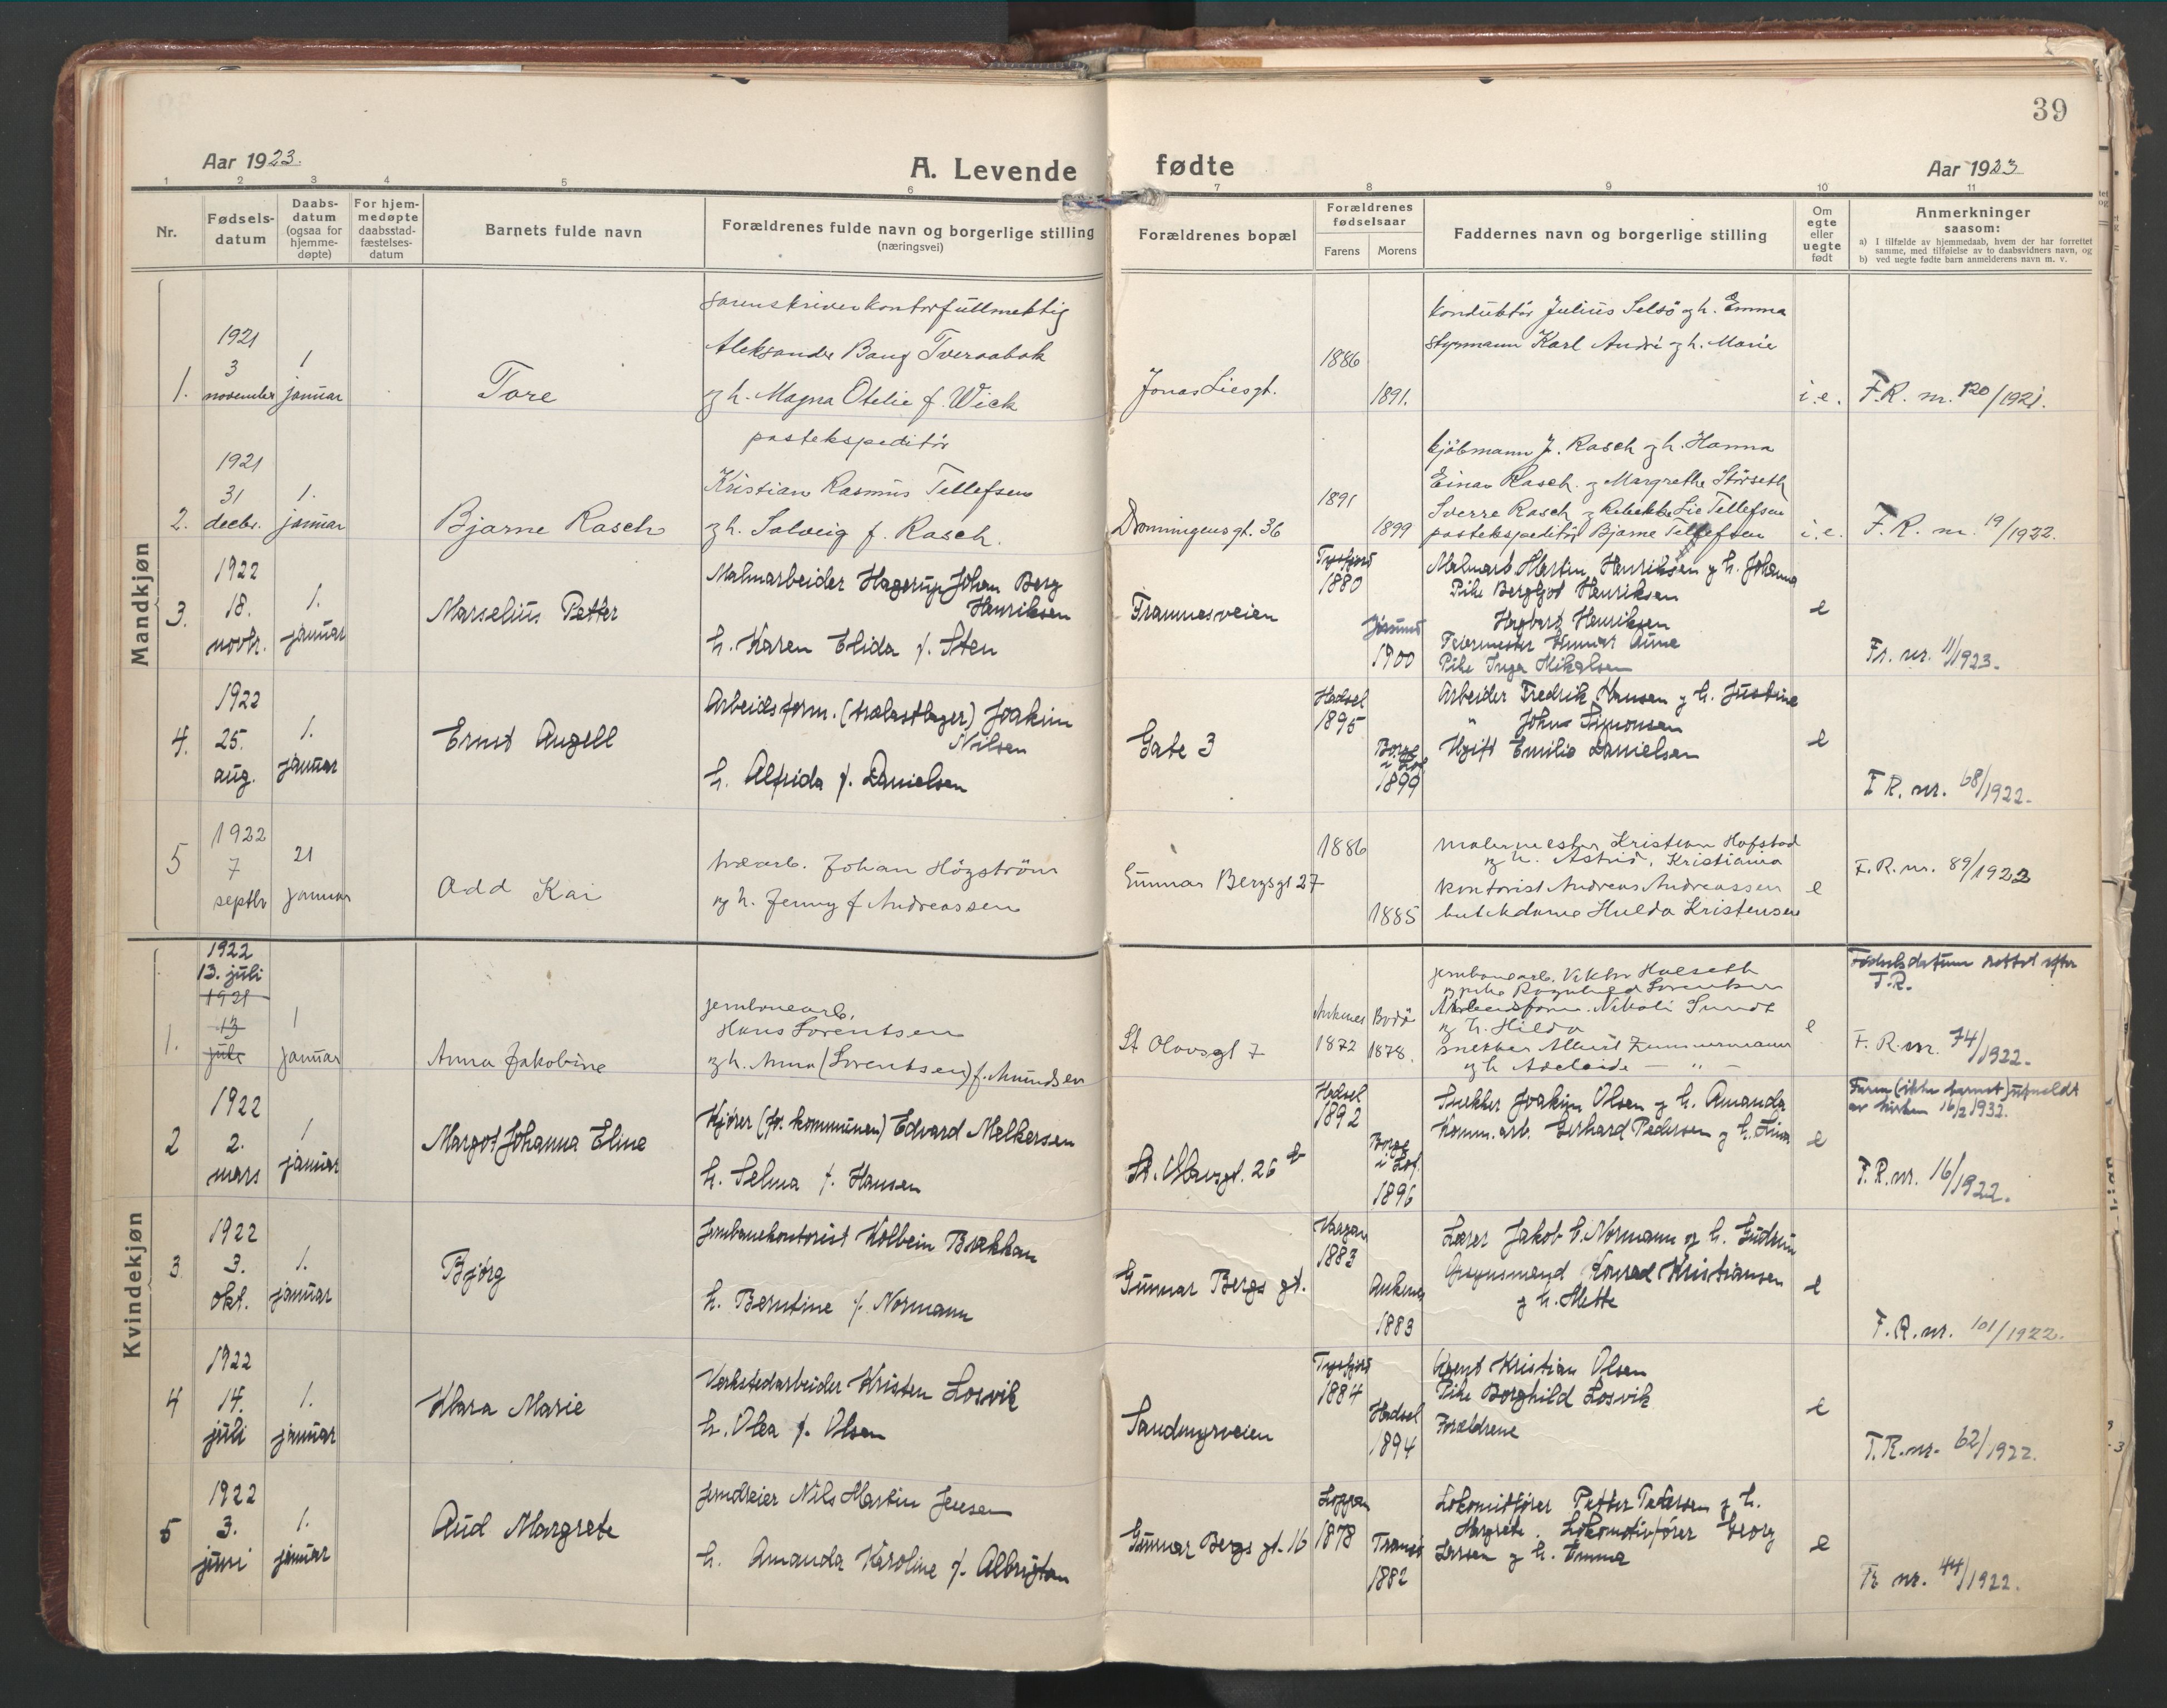 39
Aar 1923.
A. Levende fødte
Aar 1923
1 2 3 4 5 6 7 8 9 10 11
Nr.
Fødsels-
datum
Daabs-
datum
(ogsaa for
hjemme-
døpte)
For hjem-
medøpte
daabsstad-
fæstelses-
datum
Barnets fulde navn
Forældrenes fulde navn og borgerlige stilling
(næringsvei)
Forældrenes bopæl
Forældrenes
fødselsaar
Farens Morens
Faddernes navn og borgerlige stilling
Om
egte
eller
uegte
født
Anmerkninger
saasom:
a) I tilfælde av hjemmedaab, hvem der har forrettet
samme, med tilføielse av to daabsvidners navn, og
b) ved uegte fødte barn anmelderens navn m. v.
Mandkjøn
1.
1921
3
november
1
januar
Tore
sorenskriverkontorfullmektig
Aleksander Bang Tveraabak
og h. Magna Otelie f. Wick
Jonas Liesgt.
1886
1891.
Konduktör Julius Selsö og h. Emma
Styrmann Karl André og h. Marie
i.e.
F.R. nr. 120/1921.
2.
1921
31
decbr.
1.
januar
Bjarne Rasch
postekspeditör
Kristian Rasmus Tellefsen
og h. Solveig f. Rasch.
Dronningensgt. 36
1891
1899
kjöbmann J. Rasch og h. Hanna
Einar Rasch og Margrethe Störseth
Sverre Rasch og Rebekka Lie Tellefsen
postekspeditör Bjarne Tellefsen
i.e.
F.R. nr. 19/1922.
3.
1922
18.
novbr.
1.
januar
Marselius Petter
Malmarbeider Hagerup Johan Berg
Henriksen
h. Karen Elida f. Sten
Framnesveien
Tysfjord
1880
1900
Malmarb Martin Henriksen og h. Johanna
Pike Bergljot Henriksen
Hagbart Henriksen
Feiermester Gunnar Aune
Pike Inga Mikalsen
e
Fr. nr. 11/1923.
4.
1922
25.
aug.
1.
januar
Ernst Angell
Arbeidsform. (trælastlager) Joakim
Nilsen
h. Alfrida f. Danielsen
Gate 3
Hadsel
1895
Borge
i Lof.
1899
Arbeider Fredrik Hansen og h. Justine
" Johns Simonsen
Ugift Emilie Danielsen
e
F R. nr. 68/1922.
5
1922
7
septbr
21
januar
Odd Kai
træarb. Johan Högström
og h. Jenny f Andreassen
Gunnar Bergsgt 27
1886
1885
malermester Kristian Hofstad
og h. Astrid, Kristiania
kontorist Andreas Andreassen
butikdame Hulda Kristensen
e
F.R. nr. 89/1922
Kvindekjøn
1.
1922
13. juli
1921
13
juli
1
januar
Anna Jakobine
jernbanearb.
Hans Lorentsen
og h. Anna (Lorentsen) f. Amundsen
St Olavsgt 7
Ankenes
1872
Bodö
1878.
jernbanearb. Viktor Holseth
og pike Ragnhild Lorentsen
Arbeidsform. Nikolai Sundt
og h. Hilda
snekker Albert Zimmermann
og h Adelaide — " —
e
Fødselsdatum rettet efter
F.R.
F. R. nr. 74/1922.
2
1922
2.
mars
1
januar
Margot Johanna Eline
Kjører (for kommunen) Edvard Melkersen
h. Selma f. Hansen
St. Olavsgt. 26 b
Hadsel
1892
Borge
i Lof.
1896
Snekker Joakim Olsen og h. Amanda
Komm. arb. Gerhard Pedersen og h. Lina
e
Faren (ikke barnet) utmeldt
av kirken 16/2 1932.
F.R. nr. 16/1922.
3
1922
3.
okt.
1.
januar
Bjørg
Jernbanekontorist Kolbein Brækkan
h. Berntine f. Normann
Gunnar Bergs gt.
Vaagan
1883
Ankenes
1883
Lærer Jakob C. Normann og h. Gudrun
Opsynsmand Konrad Kristiansen
og h. Mette
e
F.R. nr. 101/1922.
4
1922
14.
juli
1.
januar
Klara Marie
Verkstedarbeider Kristen Losvik
h. Olea f. Olsen
Sandmyrveien
Tysfjord
1884
Hadsel
1894
Agent Kristian Olsen
Pike Borghild Losvik
Forældrene
e
F.R. nr. 62/1922.
5
1922
3.
juni
1.
januar
Aud Margrete
Jerndreier Nils Martin Jensen
h. Amanda Karoline f. Albrigtsen
Gunnar Bergs gt. 16
Loppen
1878
Tromsø
1882
Lokomotfører Petter Pedersen og h.
Margrete. Lokomotivfører Georg
Larsen og h. Emma
e
Fr nr. 44/1922.